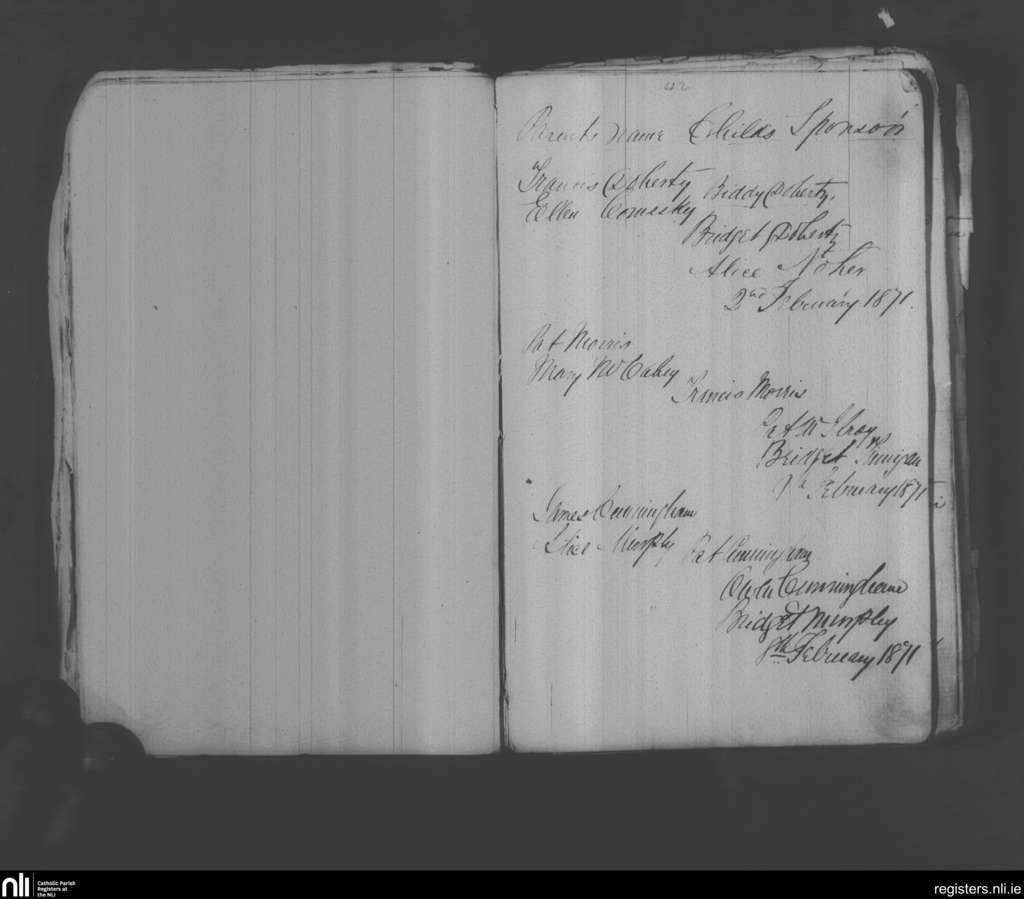 Parents name Childs Sponsors
Francis Doherty
Ellen Comesky
Biddy Doherty.
Bridget Doherty
Alice
2nd February 1871.
Pat Morris
Mary McCabey
Francis Morris
Pat McIlroy
Bridget
February 1871
James Cunningham
Alice Murphy
Pat Cunningham
Owen Cunninghame
Bridget Murphy
8th February 1871
nli
Catholic Parish
Registers at
the NLI
registers.nli.ie